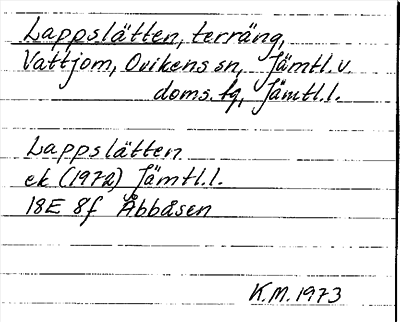 Lappslätten, terräng,
Vattjom, Ovikens sn, Jämtl. v.
doms. tg, Jämtl. l.
Lappslätten
ek (1972) Jämtl. l.
18E 8f Åbbåsen
K.M. 1973